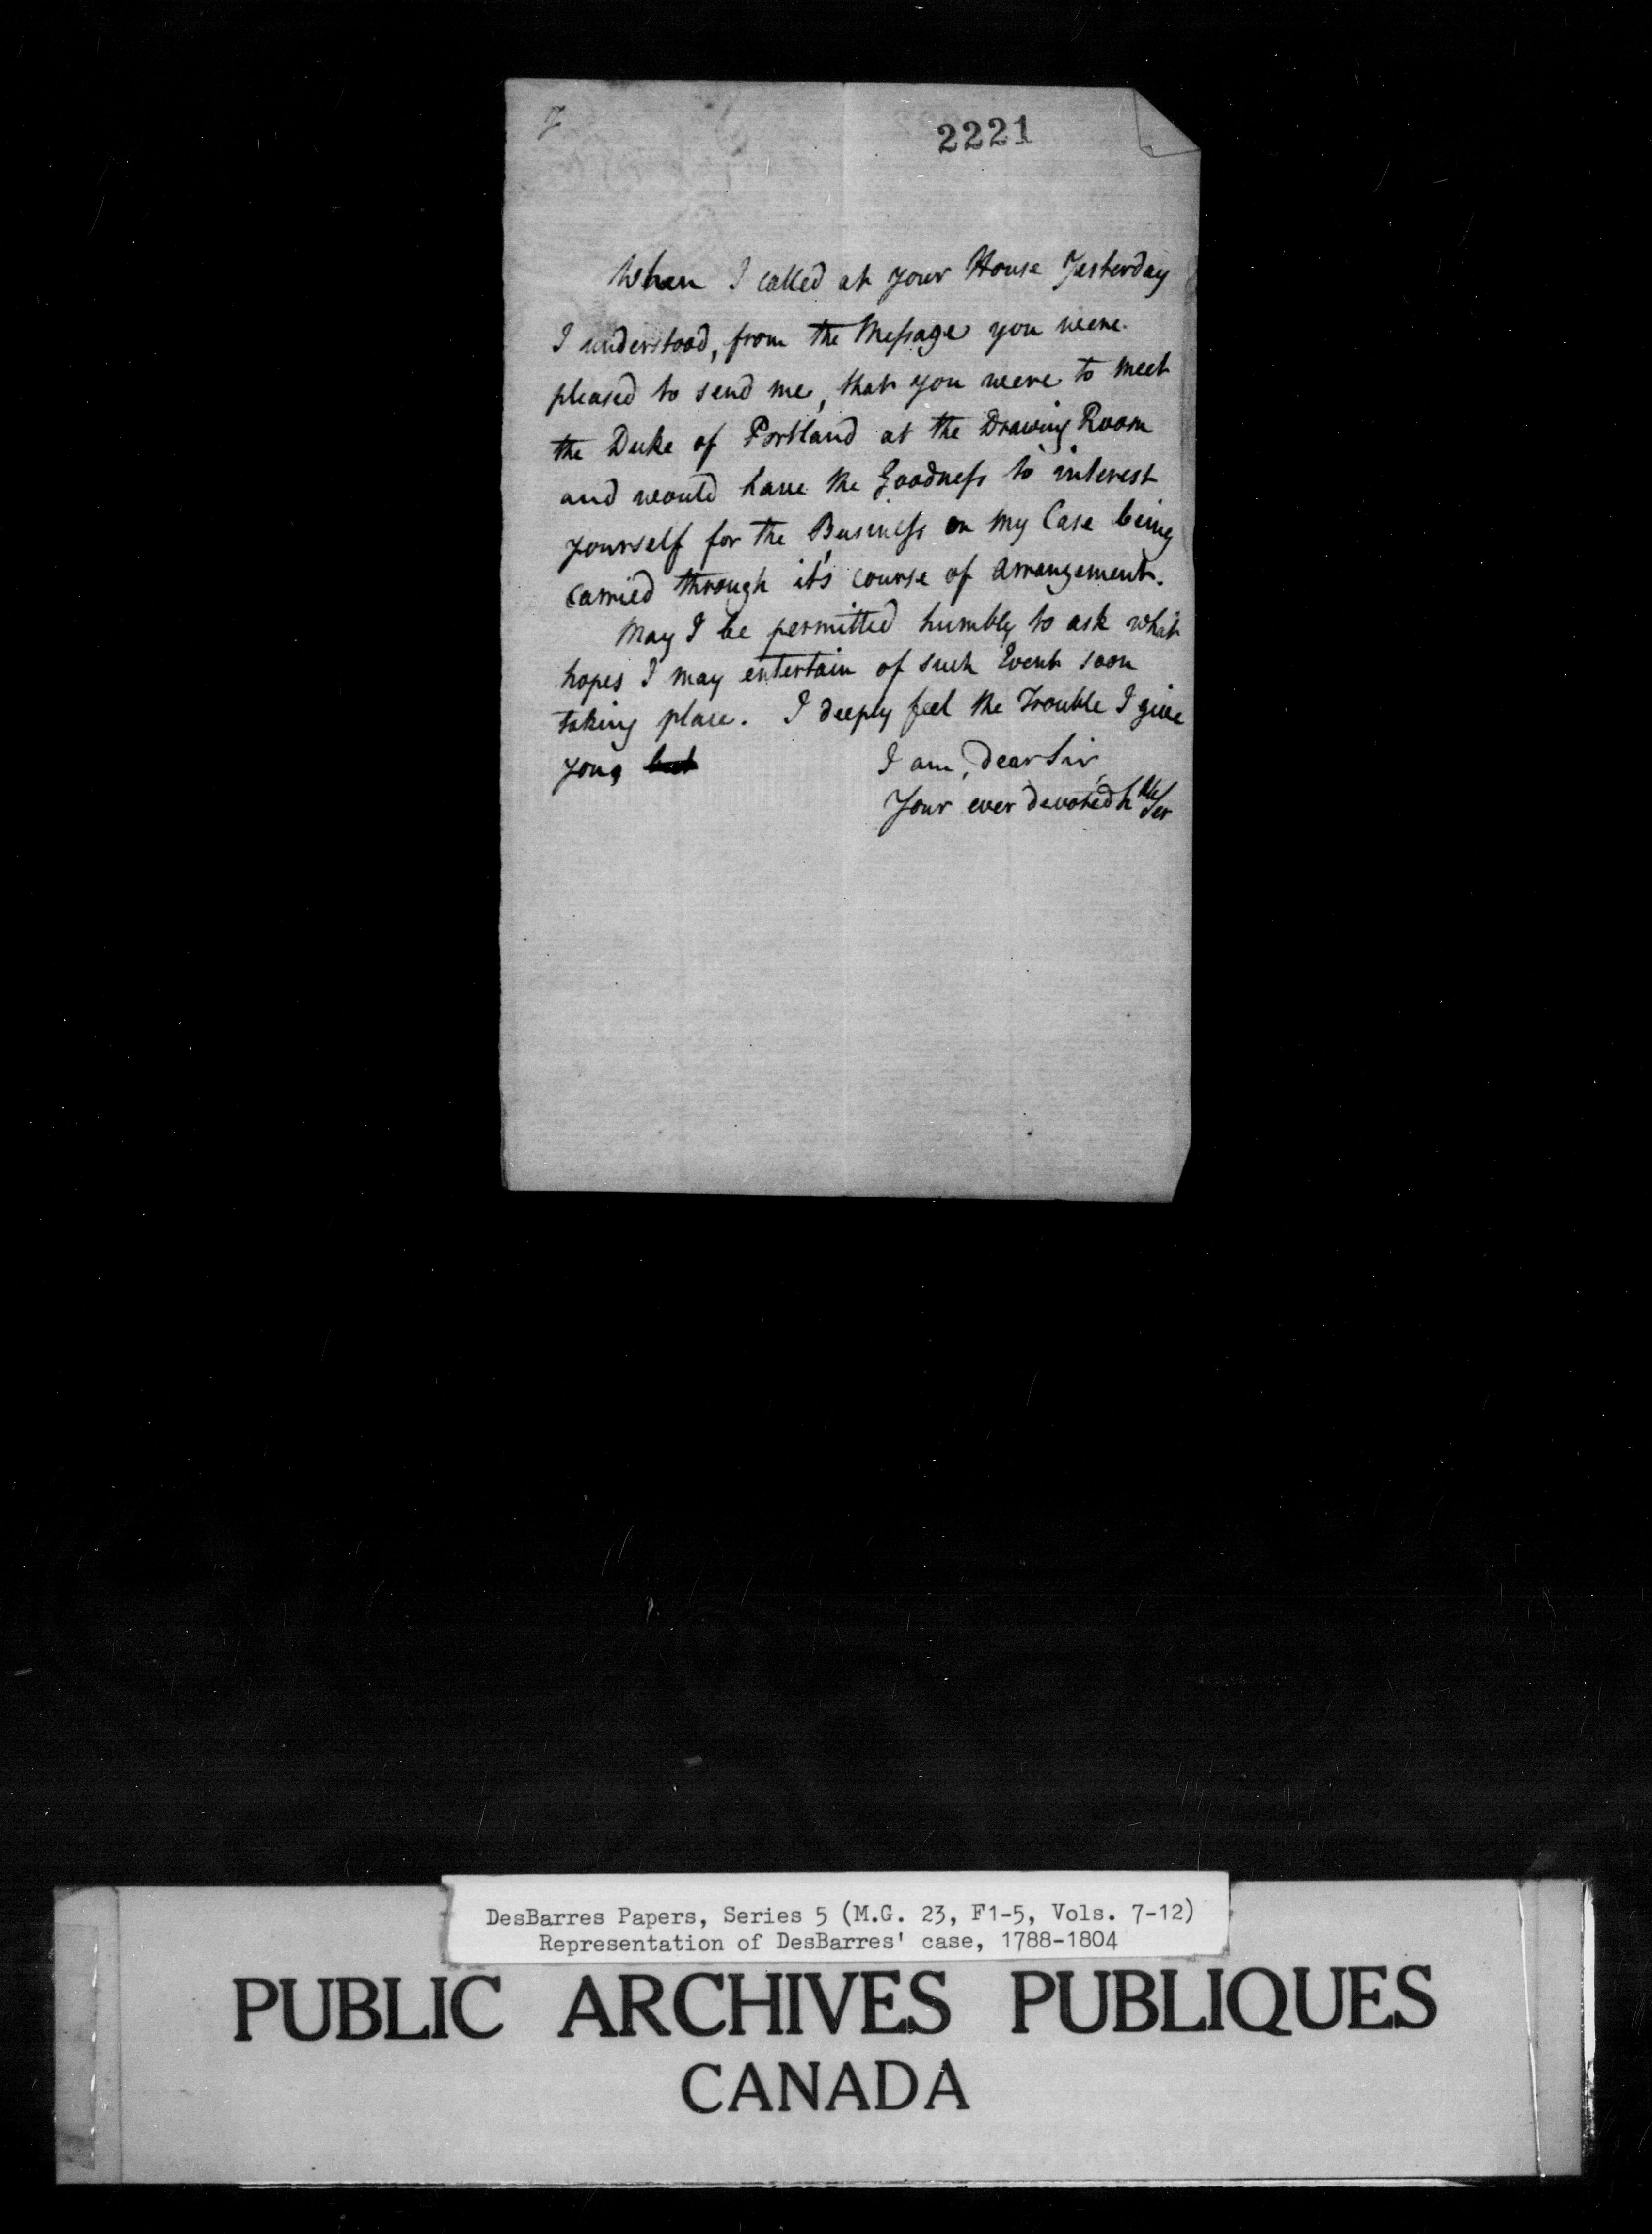 7
2221
When I called at your House Yesterday
I understood, from the Message you were
pleased to send me, that you were to meet
the Duke of Portland at the Drawing Room
and would have the Goodness to interest
yourself for the Business on my Case being
carried through it's course of arrangement.
May I be permitted humbly to ask what
hopes I may entertain of such Event soon
taking place. I deeply feel the Trouble I give
you, but
I am, Dear Sir,
Your ever devoted h ble Ser
DesBarres Papers, Series 5 (M.G. 23, F1-5, Vols. 7-12)
Representation of DesBarres' case, 1788-1804
PUBLIC ARCHIVES PUBLIQUES
CANADA